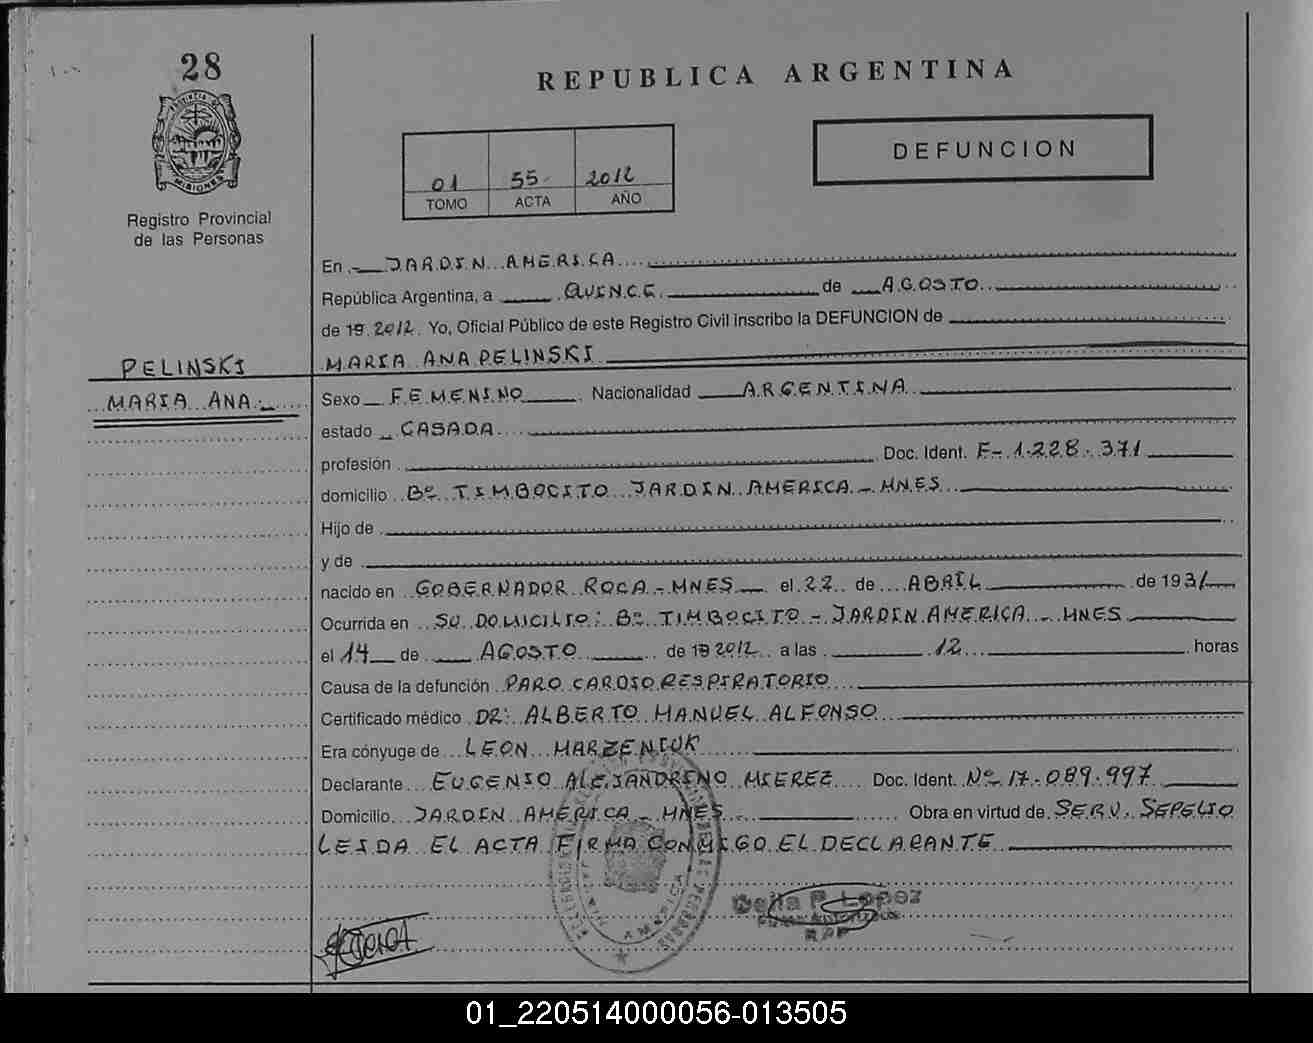 28
REPUBLICA ARGENTINA
PROVINCIA DE
MISIONES
DEFUNCION
01 55 2012
TOMO ACTA AÑO
Registro Provincial
de las Personas
En JARDIN AMERICA
República Argentina, a QUINCE de AGOSTO
de 19 2012 Yo, Oficial Público de este Registro Civil inscribo la DEFUNCION de
PELINSKI
MARIA ANA PELINSKI
MARIA ANA
Sexo FEMENINO Nacionalidad ARGENTINA
estado CASADA
profesión Doc. Ident. F-1.228.371
domicilio Bº TIMBOCITO JARDIN AMERICA - MNES
Hijo de
y de
nacido en GOBERNADOR ROCA - MNES el 22 de ABRIL de 1931
Ocurrida en SU DOMICILIO: Bº TIMBOCITO - JARDIN AMERICA - MNES
el 14 de AGOSTO de 19 2012 a las 12 horas
Causa de la defunción PARO CARDIO RESPIRATORIO
Certificado médico DR: ALBERTO MANUEL ALFONSO
Era cónyuge de LEON MARZENIUK
Declarante EUGENIO ALEJANDRINO MIEREZ Doc. Ident. Nº 17.089.997
Domicilio JARDIN AMERICA - MNES Obra en virtud de SERV. SEPELIO
LEIDA EL ACTA FIRMA CONMIGO EL DECLARANTE
AMERICA
Delia R. Lopez
01_220514000056-013505